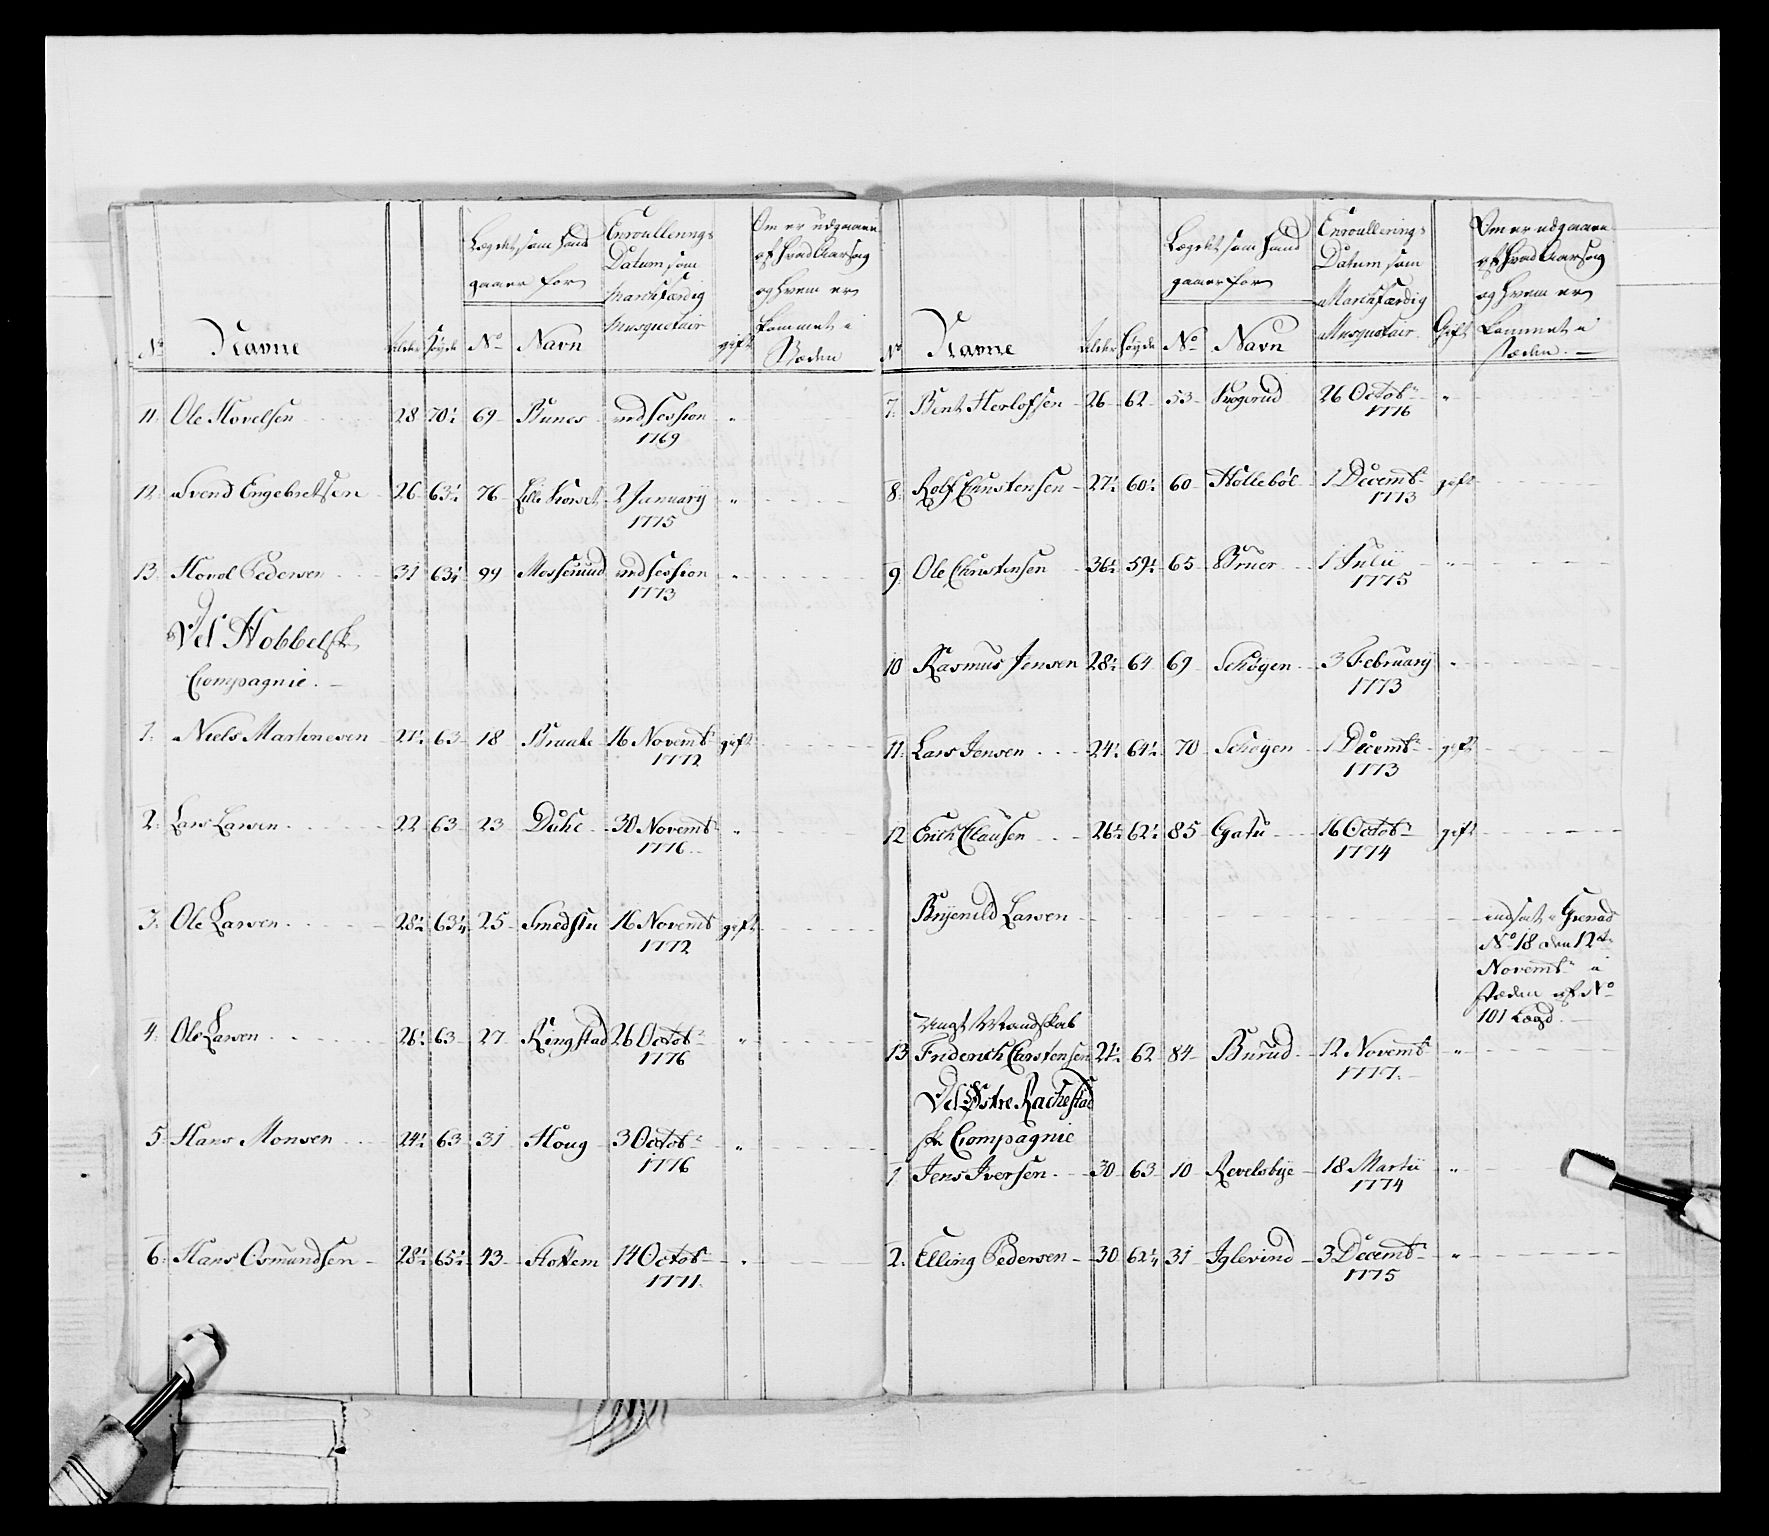 No
Navne
Alder
Høyde
Lægdet som hand
gaaer for
No
Navn
Enroullerings
Datum som
Marchfærdig
Musquetair
gift
Om er udgaaen
af hvad Aarsag
og hvem er
kommet i
Stæden
11. Ole Hovelsen 28 70½ 69 Bunes ved Session "
1769
12. Svend Engebretsen 26 63½ 76 Lille Korset 2 January "
1775
13. Hovel Pedersen 31 63¼ 99 Mosserud ved Session "
1773
Ved Hobbelsk
Compagnie.
1. Niels Martinesen 27½ 63 18 Braate 16 Novemb gift
1772
2. Lars Larsen 22 63 23 30 Novemb "
1776
3. Ole Larsen 28½ 63¼ 25 Smedstu 16 Novemb gift
1772
4. Ole Larsen 26½ 63 27 Ringstad 26 Octob "
1776
5. Hans Monsen 24½ 63 31 Houg 3 Octob "
1776
6. Hans Osmundsen 28½ 65½ 43 14 Octob "
1771.
No
Navne
Alder
Høyde
Lægdet som hand
gaaer for
No
Navn
Enroullerings
Datum som
Marchfærdig
Musquetair
Gift
Om er udgaaen
af hvad Aarsag
og hvem er
kommet i
stæden.
7. Bent Herlofsen 26 62 53 26 Octob "
1776
8. Rolf 27½ 60½ 60 Hollebøl 1 Decemb gift
1773
9. Ole Christensen 36½ 59½ 65 Bruer 1 Julii "
1775
10 Rasmus Jensen 28½ 64 69 Schøyen 3 February "
1773
11. Lars Jensen 24½ 64½ 70 Schøyen 1 Decemb gift
1773
12 Erich Clausen 26½ 62½ 85 Gatu 16 Octob gift
1774
Brynild Larsen indsat Grenad
No 18 den 12te
Novemb i
stæden af No
101 Lægd.
Ungt Mandskab
13 Friderich Carstensen 21½ 62 84 Burud 12 Novemb "
1777.
Ved Østre Rachestad
sk Compagnie
1 Jens Iversen 30 63 10 Revelsbye 18 Martii "
1774
2. Elling Pedersen 30 62¼ 31 Iglerind 3 Decemb "
1775